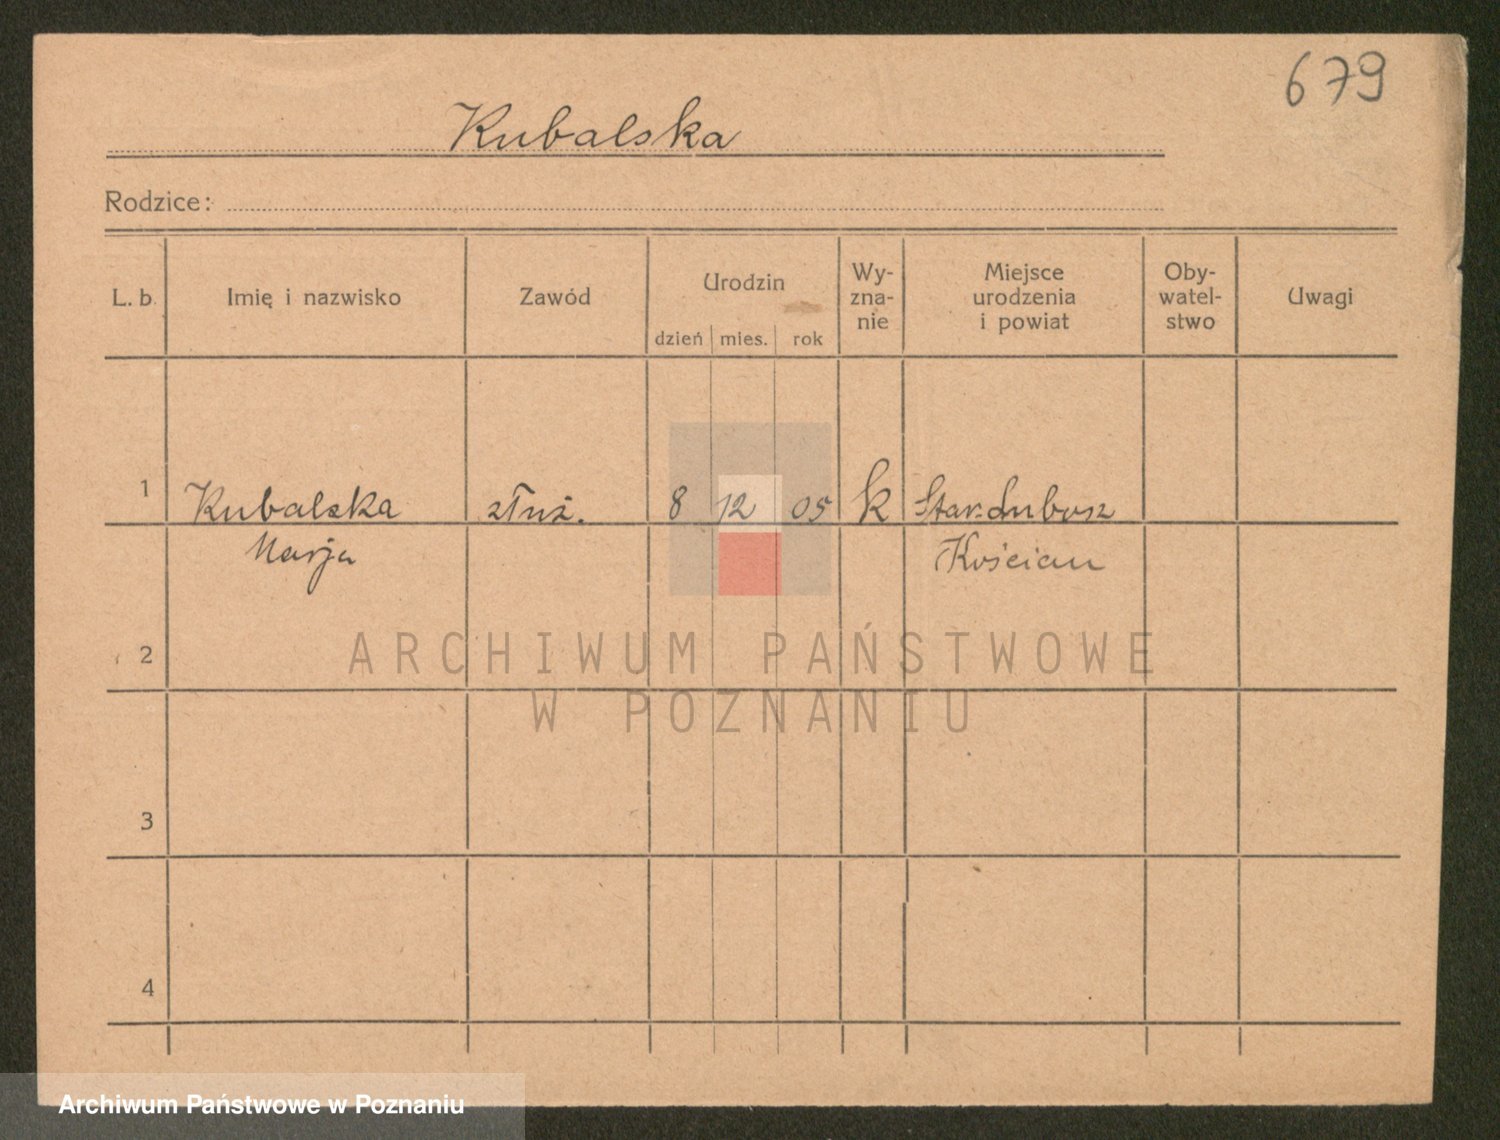 679
Kubalska
Rodzice:
L. b. Imię i nazwisko Zawód Urodzin dzień mies. rok Wy-zna-nie Miejsce urodzenia i powiat Oby-watel-stwo Uwagi
1 Kubalska służ. 8 12 05 k Star. Lubosz
Marja Kościan
2
3
4
ARCHIWUM PAŃSTWOWE
W POZNANIU
Archiwum Państwowe w Poznaniu